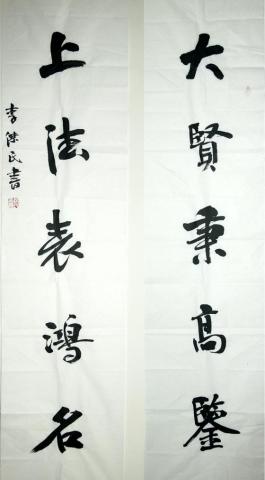 大賢秉高鑒
上法表鴻名
李傑民書